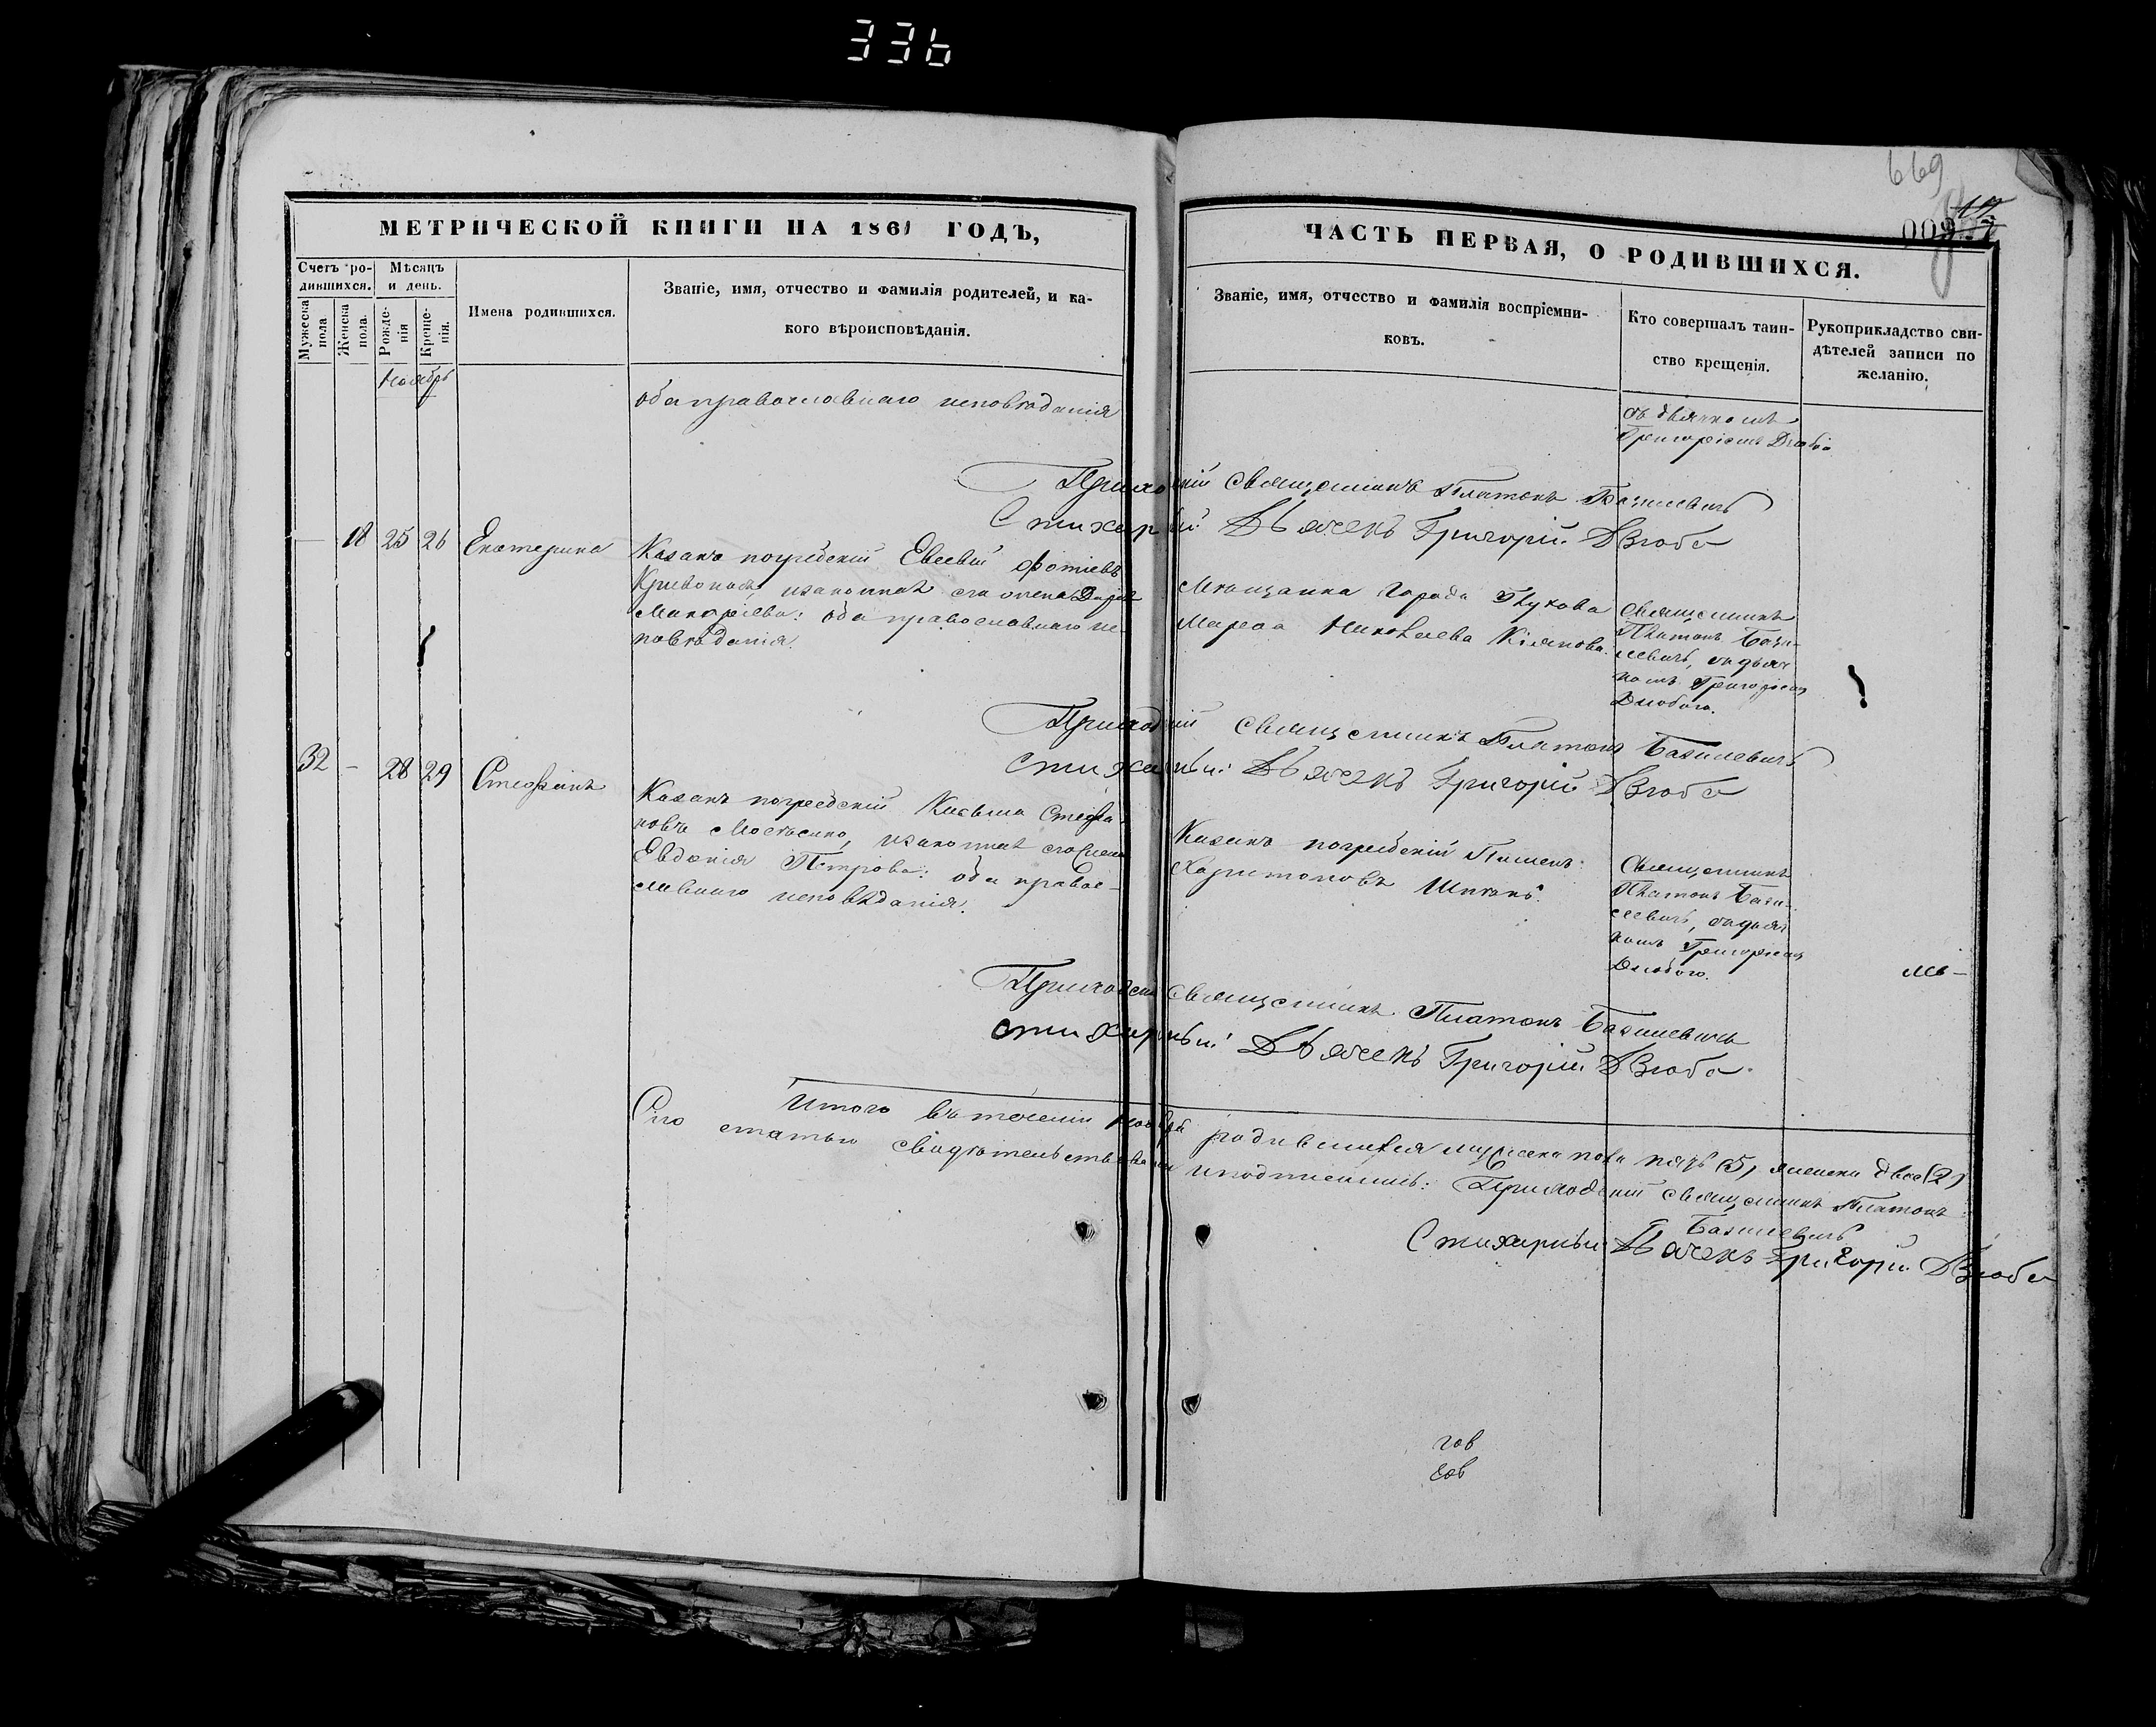 336
669
МЕТРИЧЕСКОЙ КНИГИ НА 1861 ГОДЪ,
Счетъ ро-
дившихся.
Мѣсяцъ
и день.
Мужеска
пола
Женска
пола.
Рожде-
нія
Креще-
нія.
Имена родившихся.
Званіе, имя, отчество и фамилія родителей, и ка-
кого вѣроисповѣданія.
ЧАСТЬ ПЕРВАЯ, О РОДИВШИХСЯ.
Званіе, имя, отчество и фамилія воспріемни-
ковъ.
Кто совершалъ таин-
ство крещенія.
Рукоприкладство сви-
дѣтелей записи по
желанію.
Ноябрь
оба православнаго исповѣданія
съ дьячкомъ
Григоріемъ
Приходскій Священникъ Платонъ Базилевичъ
Стихарный Дьячекъ Григорій Дзюба
— 18 25 26 Екатерина
Казакъ погребскій Евсевій Фотіевъ
законная его жена Дарія
оба православнаго ис-
повѣданія.
Мѣщанка города Глухова
Марѳа Николаева
Священникъ
Платонъ Бази-
левичъ, съ дьяч-
комъ Григоріемъ
Дзюбою.
Приходскій Священникъ Платонъ Базилевичъ
Стихарный Дьячекъ Григорій Дзюба
32 — 28 29 Стефанъ
Казакъ погребскій Косьма Стефа-
новъ законная его жена
Евдокія Петрова: оба правос-
лавнаго исповѣданія.
Казакъ погребскій Пименъ
Харитоновъ
Священникъ
Платонъ Бази-
левичъ, съ дьяч-
комъ Григоріемъ
Дзюбою.
Приходскій Священникъ Платонъ Базилевичъ
Стихарный Дьячекъ Григорій Дзюба
Итого въ теченіи ноября родившихся мужеска пола пять (5), женска двѣ (2)
Сію статью свидѣтельствовали и подписали: Приходскій Священникъ Платонъ
Базилевичъ
Стихарный Дьячекъ Григорій Дзюба